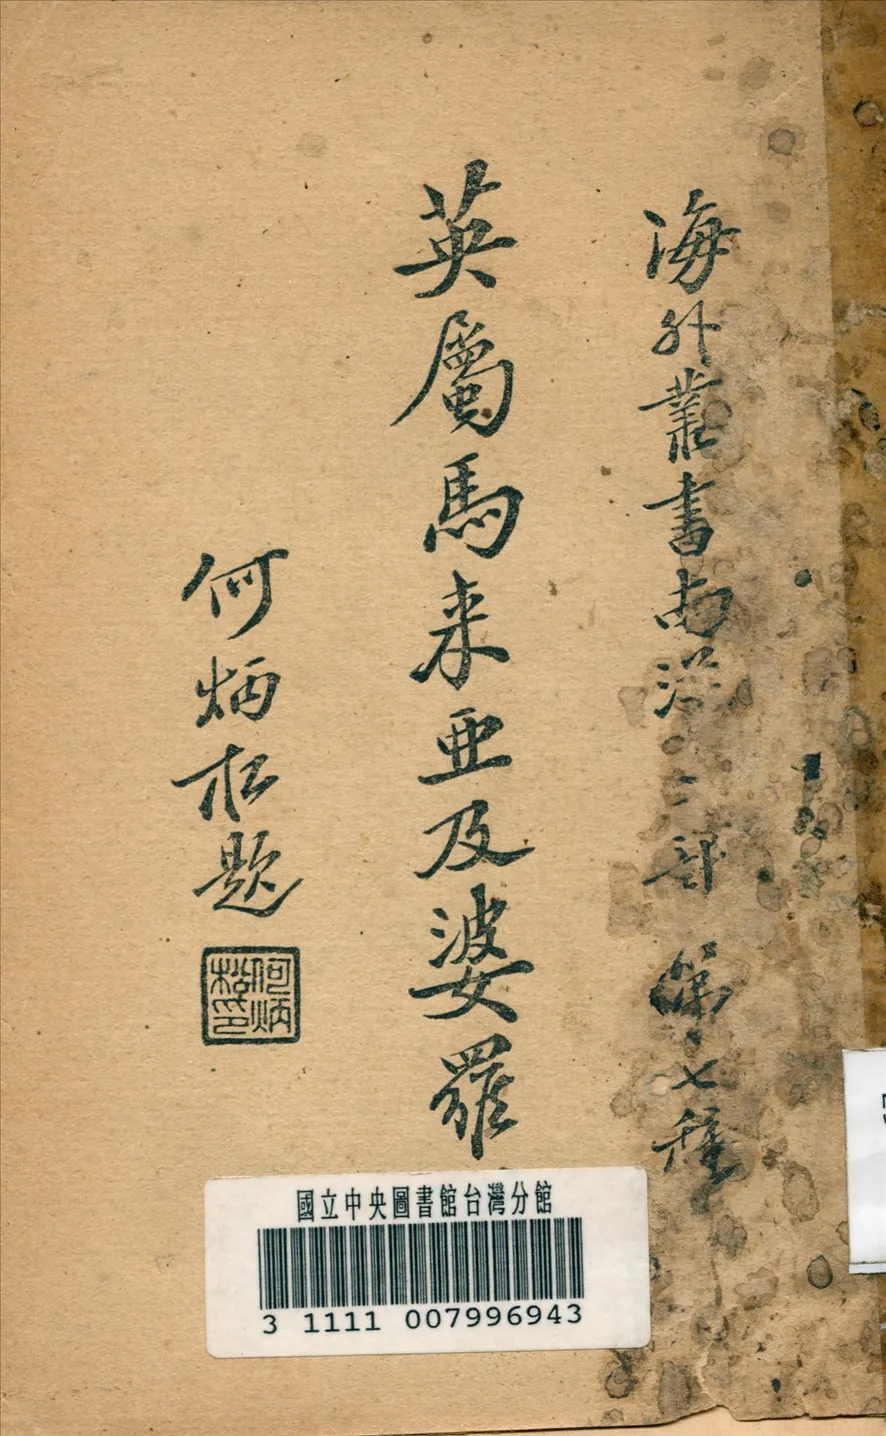 海外叢書南洋之部 第七種
英屬馬来亚及婆羅
何炳松題
何炳松印
國立中央圖書館台灣分館
3 1111 007996943